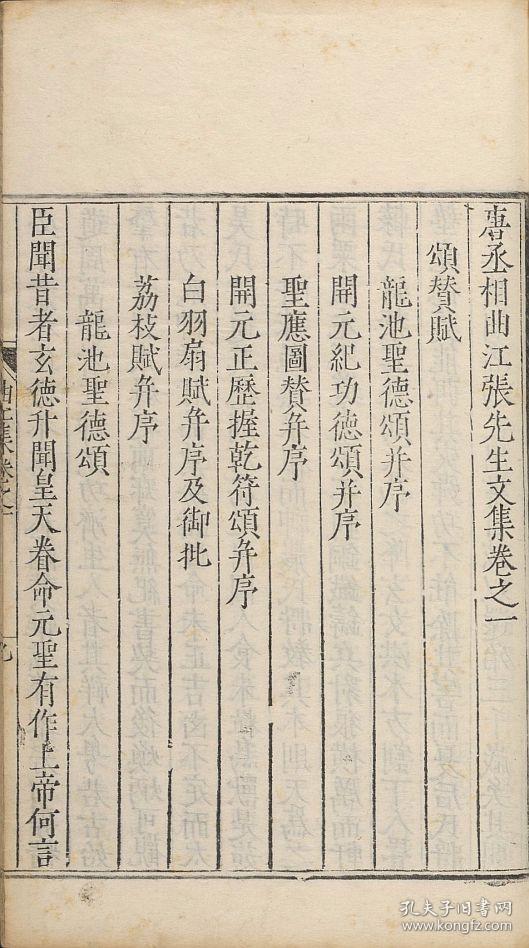 唐丞相曲江張先生文集卷之一
頌賛賦
龍池聖德頌并序
開元紀功德頌并序
聖應圖賛并序
開元正歷握乾符頌并序
白羽扇賦并序及御批
荔枝賦并序
龍池聖德頌
臣聞昔者玄德升聞皇天眷命元聖有作上帝何言
曲江集卷之一
九
孔夫子旧书网
www.kongfz.com